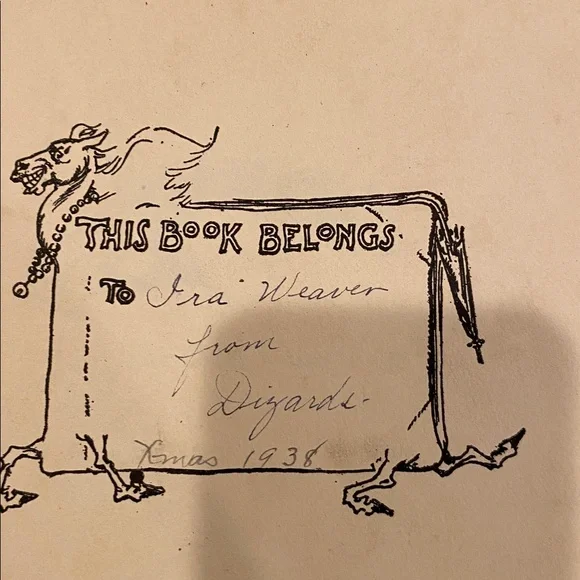 THIS BOOK BELONGS
TO Ira Weaver
from
Dizards.
Xmas 1938